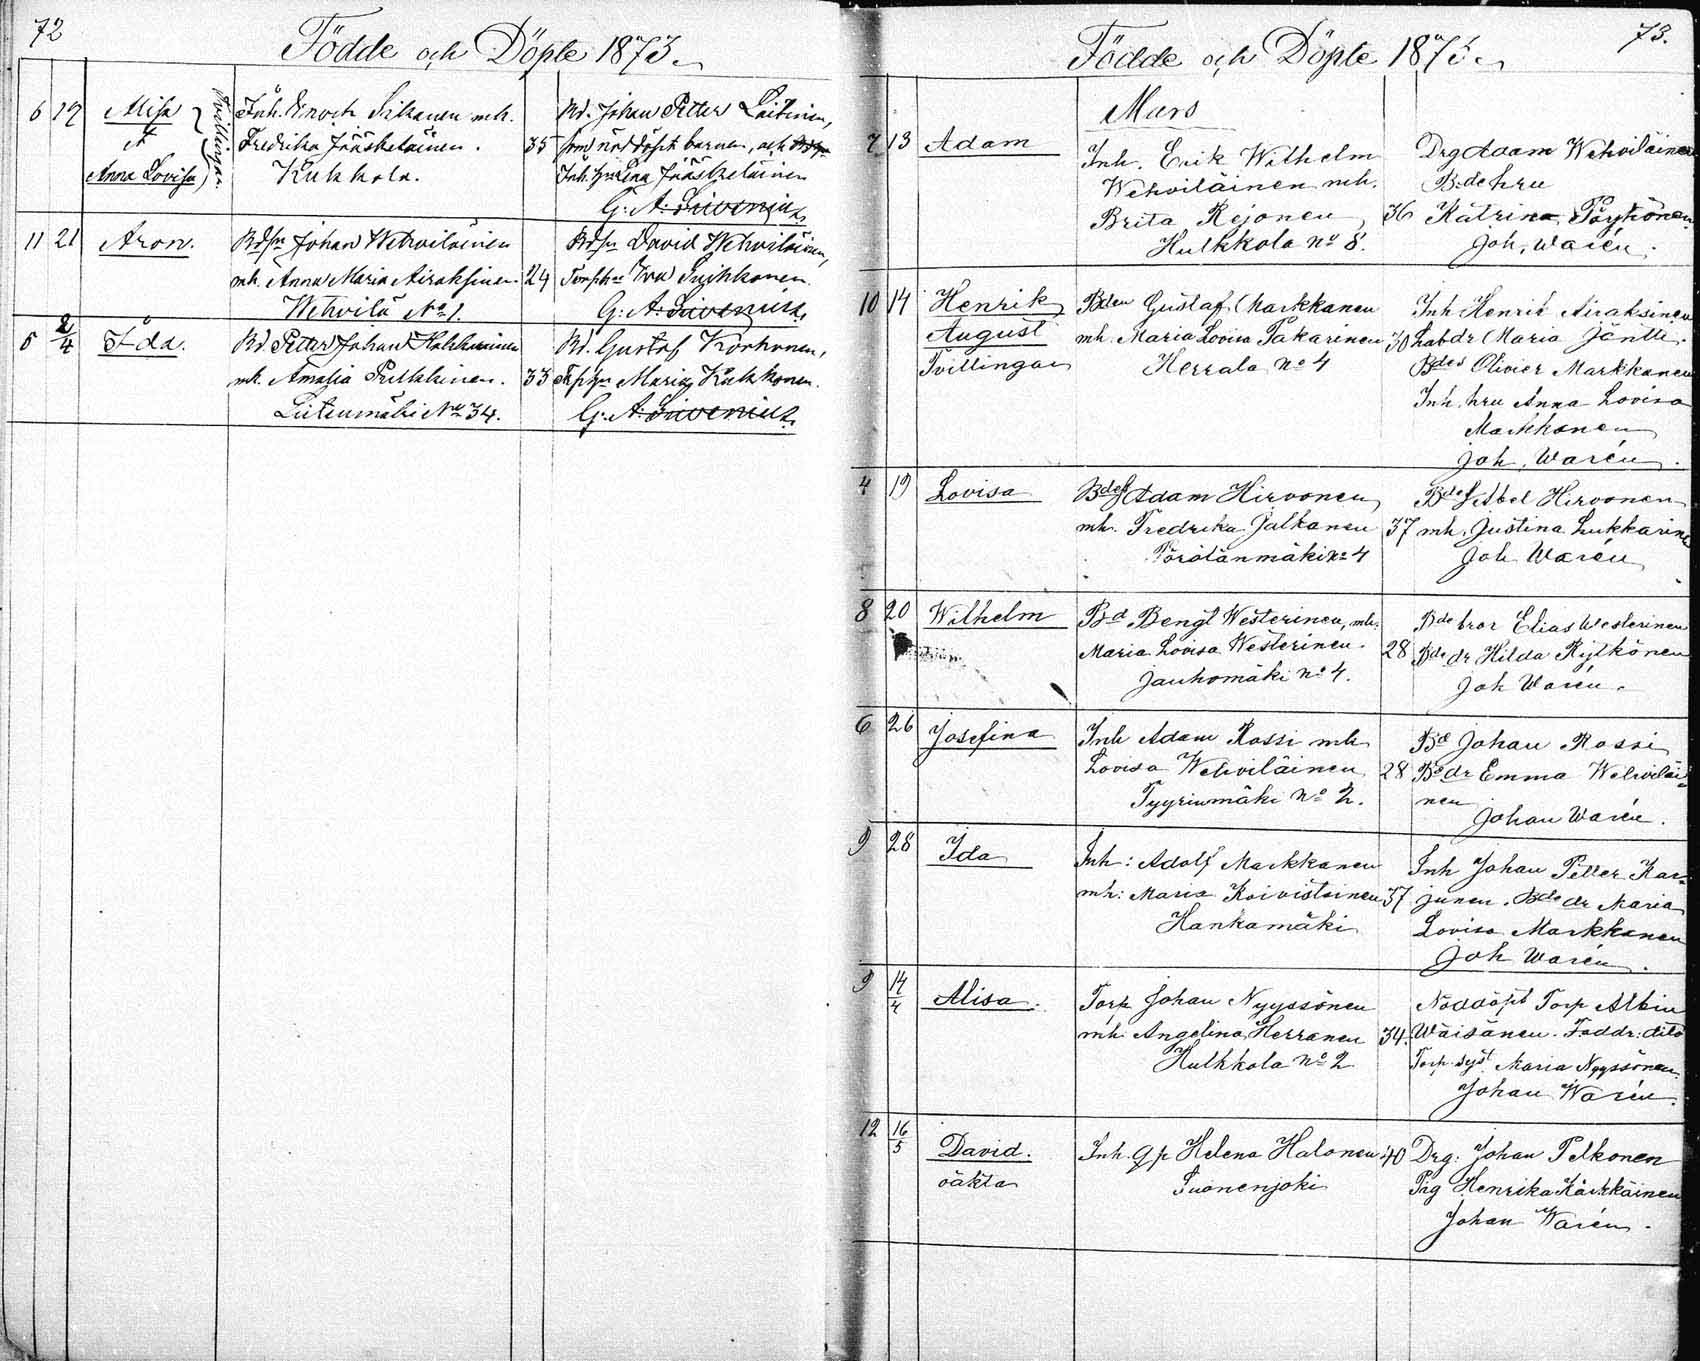 72
Födde och Döpte 1873.
6 19 Alisa Inh. Enoch Silkanen mh. Bd. Johan Petter Laitinen,
& Tvillingar Fredrika Jääskeläinen. 35 som nöddöpt barnen, och
Anna Lovisa Kukkola. Inh. hu Lena Jääskeläinen
G. A. Sivenius.
11 21 Aron. Bdsn Johan Wehviläinen Bdsn David Wehviläinen,
mh. Anna Maria Airaksinen. 24 Eva Suihkonen.
Wehvilä No 1. G. A. Sivenius.
5 2/4 Ida. Bd. Petter Johan Bd. Gustaf Korhonen,
mh. Amalia Pulkkinen. 33 Maria Kukkonen.
Liitinmäki No 34. G. A. Sivenius.
73.
Födde och Döpte 1873.
Mars
7 13 Adam Inh. Erik Wilhelm Drg Adam Wehviläinen
Wehviläinen mh. B:de hru
Brita Rejonen 36 Katrina Pöyhönen
Hulkkola No 8. Joh. Warén.
10 14 Henrik Bden Gustaf Markkanen Inh Henrik Airaksinen
August mh. Maria Lovisa Takarinen 30 Labdr Maria Jäntti.
Tvillingar Herrala No 4 Bdes Olivier Markkanen
Inh. hru Anna Lovisa
Markkanen
Joh. Warén.
4 19 Lovisa Bdes Adam Hirvonen Bdes Abel Hirvonen
mh. Fredrika Jalkanen 37 mh. Justina Lukkarinen
Pörölänmäki No 4 Joh Warén
8 20 Wilhelm Bd Bengt Westerinen, mh. Bde bror Elias Westerinen
Maria Lovisa Westerinen. 28 Bde dr Hilda Rytkönen
Jauhomäki No 4. Joh Warén.
6 26 Josefina Inh Adam Rossi mh Bd Johan Rossi
Lovisa Wehviläinen 28 Bdedr Emma Wehviläi-
Tyyrinmäki No 2. nen
Johan Warén.
9 28 Ida Inh: Adolf Markkanen Inh Johan Petter Kar-
mh: Maria Koivistoinen 37 junen. Bde dr Maria
Hankamäki Lovisa Markkanen
Joh Warén.
9 14/4 Alisa. Torp Johan Nyyssönen Nöddöpt Torp Albin
mh: Angelina Herranen 34. Wäisänen. Faddr: dito
Hulkkola No 2 Torp. syst Maria Nyyssönen
Johan Warén.
12 16/5 David. Inh. qp Helena Halonen 40 Drg: Johan Pelkonen
oäkta Suonenjoki Pig Henrika Kärkkäinen
Johan Warén.